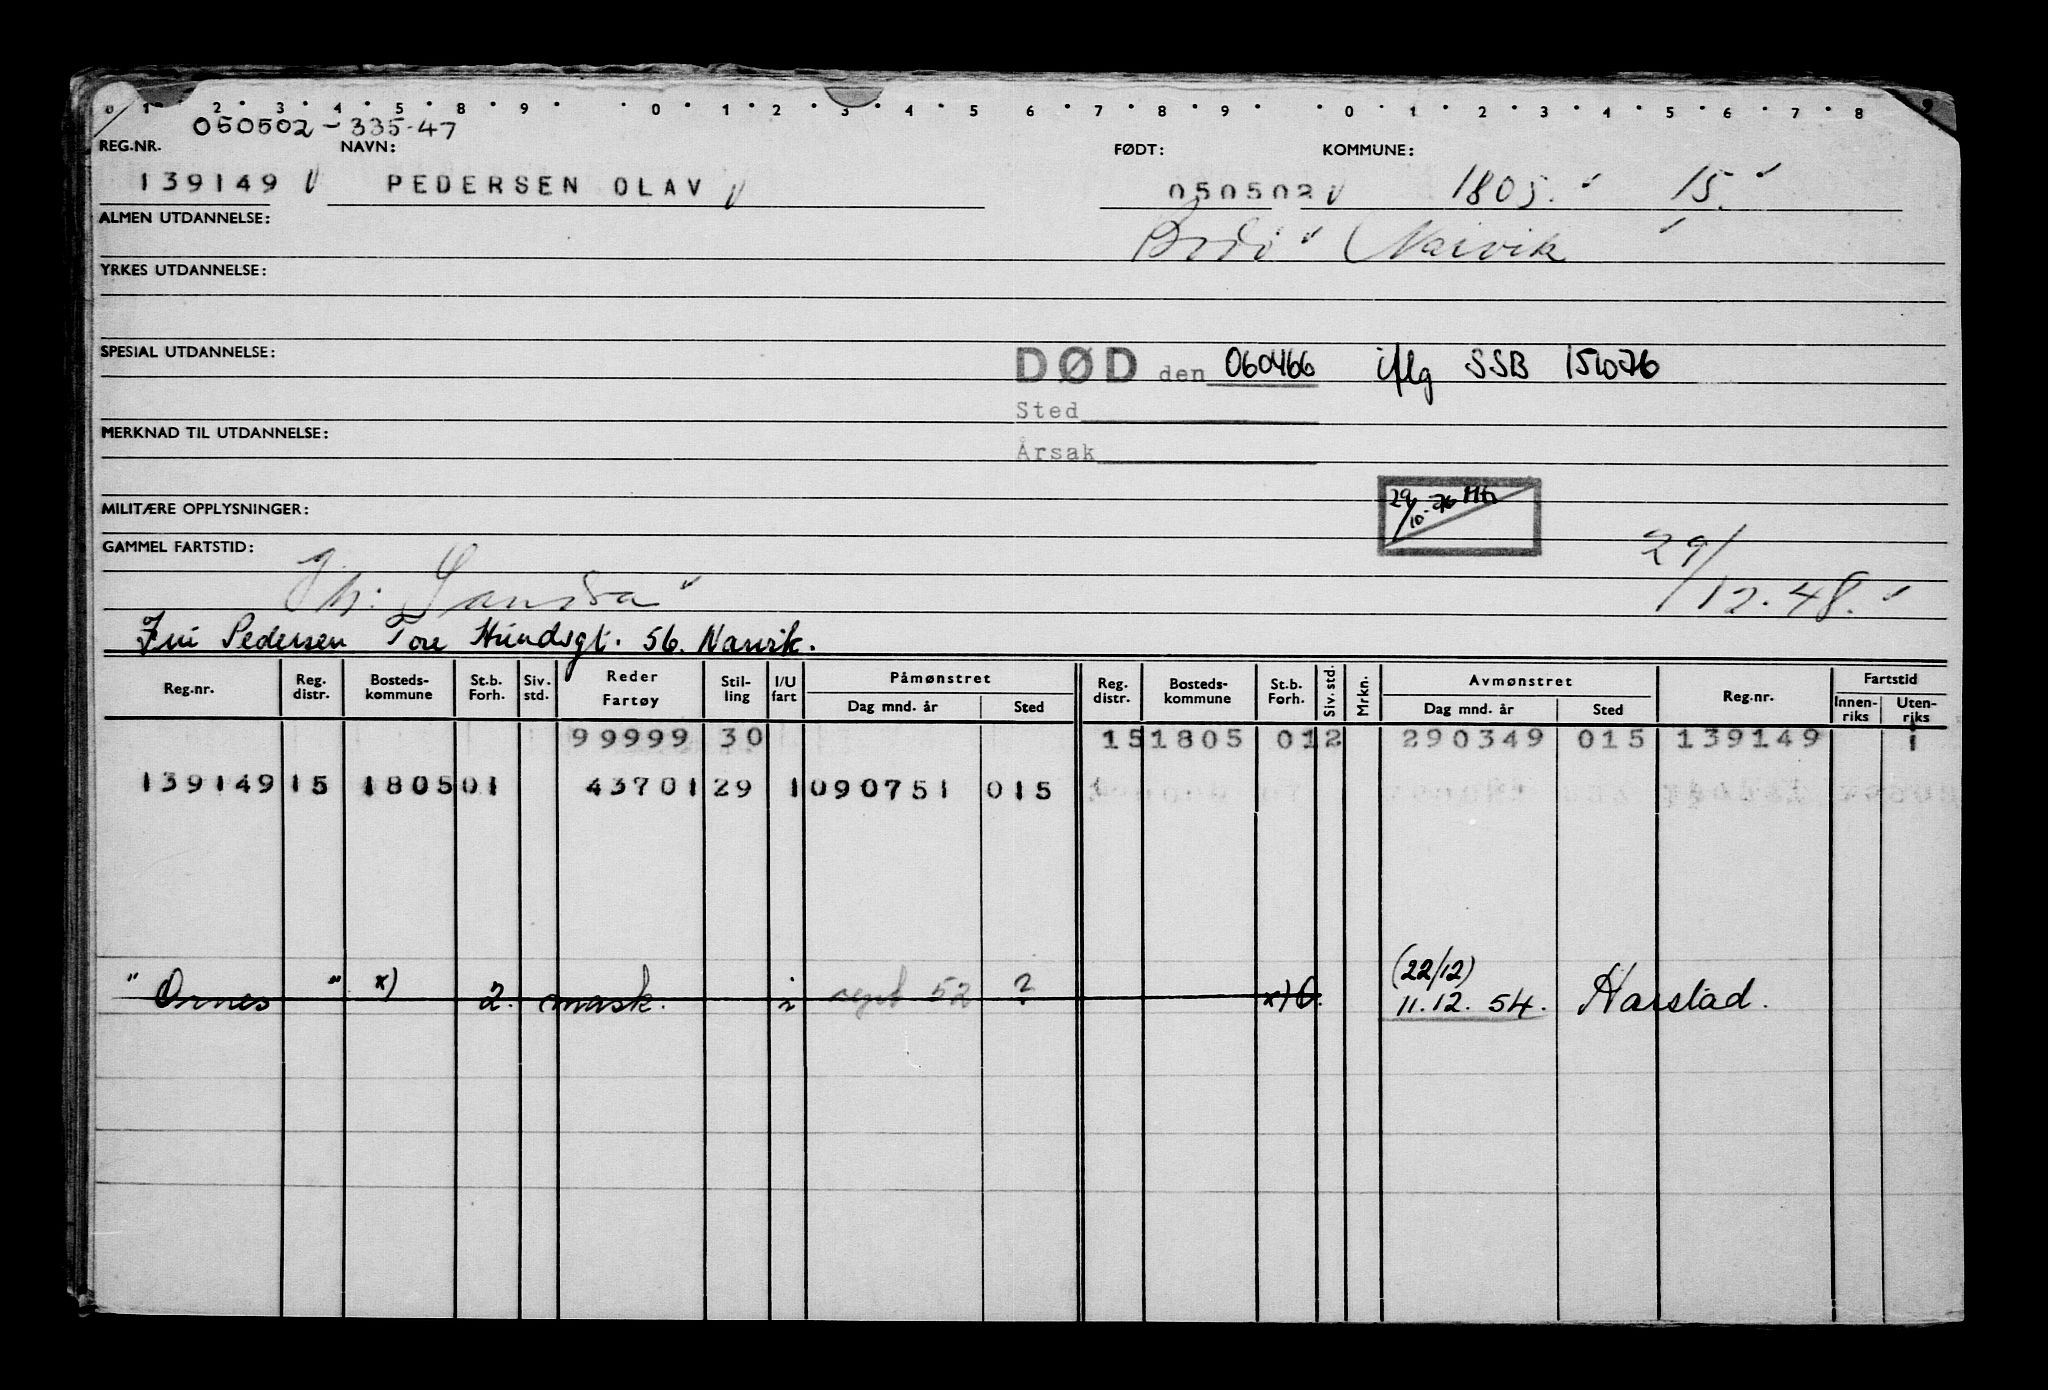 0 1 2 3 4 5 8 9 0 1 2 3 4 5 6 7 8 9 0 1 2 3 4 5 6 7 8 9
050502-335-47
REG.NR. NAVN: FØDT: KOMMUNE:
139149 PEDERSEN OLAV 050502 1805. 15.
ALMEN UTDANNELSE: Bodö Narvik
YRKES UTDANNELSE:
SPESIAL UTDANNELSE: DØD den 060466 iflg SSB 151076
Sted
MERKNAD TIL UTDANNELSE:
Årsak
MILITÆRE OPPLYSNINGER: 29/10-76
GAMMEL FARTSTID: 29/12.48.
Fru Pedersen Tore Hundsgt. 56. Narvik.
Reg.nr. Reg. distr. Bosteds-kommune St.b. Forh. Siv. std. Reder Fartøy Stil-ling I/U fart Påmønstret Dag mnd. år Sted Reg. distr. Bosteds-kommune St.b. Forh. Siv. std. Mrkn. Avmønstret Dag mnd. år Sted Reg.nr. Fartstid Innen-riks Uten-riks
99999 30 15 1805 01 2 290349 015 139149 1
139149 15 1805 01 43701 29 1 090751 015
(22/12)
" Ornes " x) 2. mask. i sept 52 ? x) 11.12.54. Harstad.